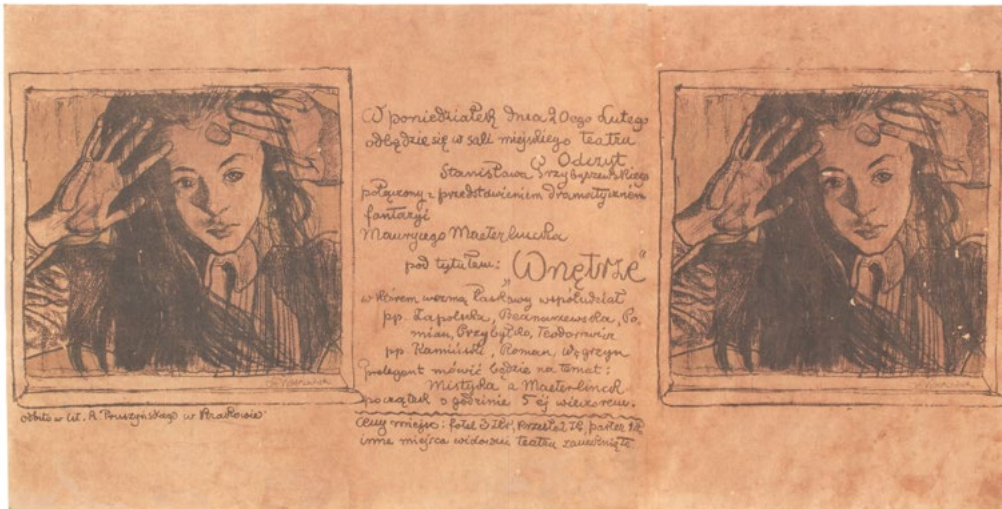 W poniedziałek dnia 20ego Lutego
odbędzie się w sali miejskiego teatru
Odczyt
Stanisława Przybyszewskiego
połączony z przedstawieniem dramatycznem
fantazyi
Maurycego Maeterlincka
pod tytułem: „Wnętrze"
w którem wezmą łaskawy współudział
pp. Zapolska, Bednarzewska, Po-
mian, Przybyłko, Teodorowicz
pp Kamiński, Roman, Węgrzyn
prelegent mówić będzie na temat:
Mistyka a Maeterlinck
początek o godzinie 5ej wieczorem.
Ceny miejsc: fotel 3 Złr, krzesło 2 Zł, parter 1 Zł
inne miejsca widowni teatru zamknięte.
odbito w lit. A. Pruszyńskiego w Krakowie